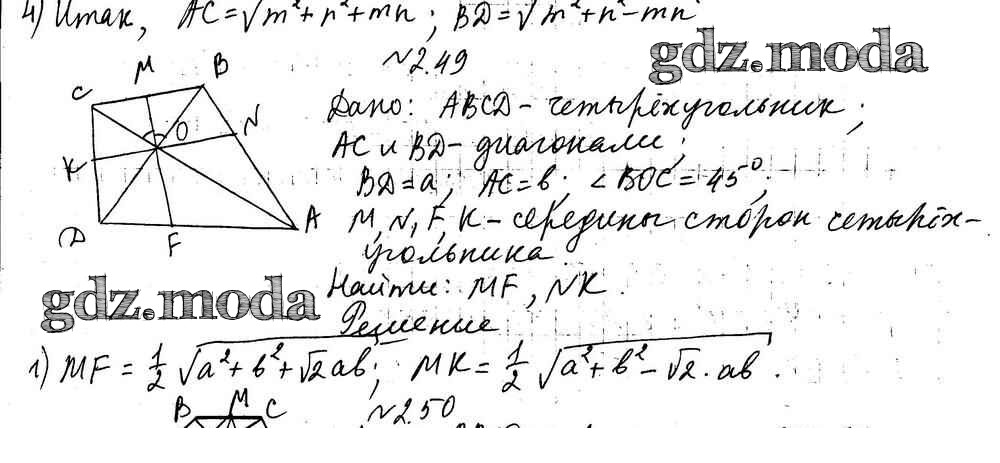 4) Итак, AC = √m²+n²+mn ; BD = √m²+n²-mn
N 2.49
gdz.moda
C M B
O N
K
D F A
Дано: ABCD - четырёхугольник;
AC и BD - диагонали;
BD = a; AC = b; ∠BOC = 45°;
M, N, F, K - середины сторон четырёх-
угольника.
Найти: MF, NK.
gdz.moda
Решение
1) MF = 1/2 √a²+b²+√2ab; MK = 1/2 √a²+b²-√2·ab.
B M C
N 2.50